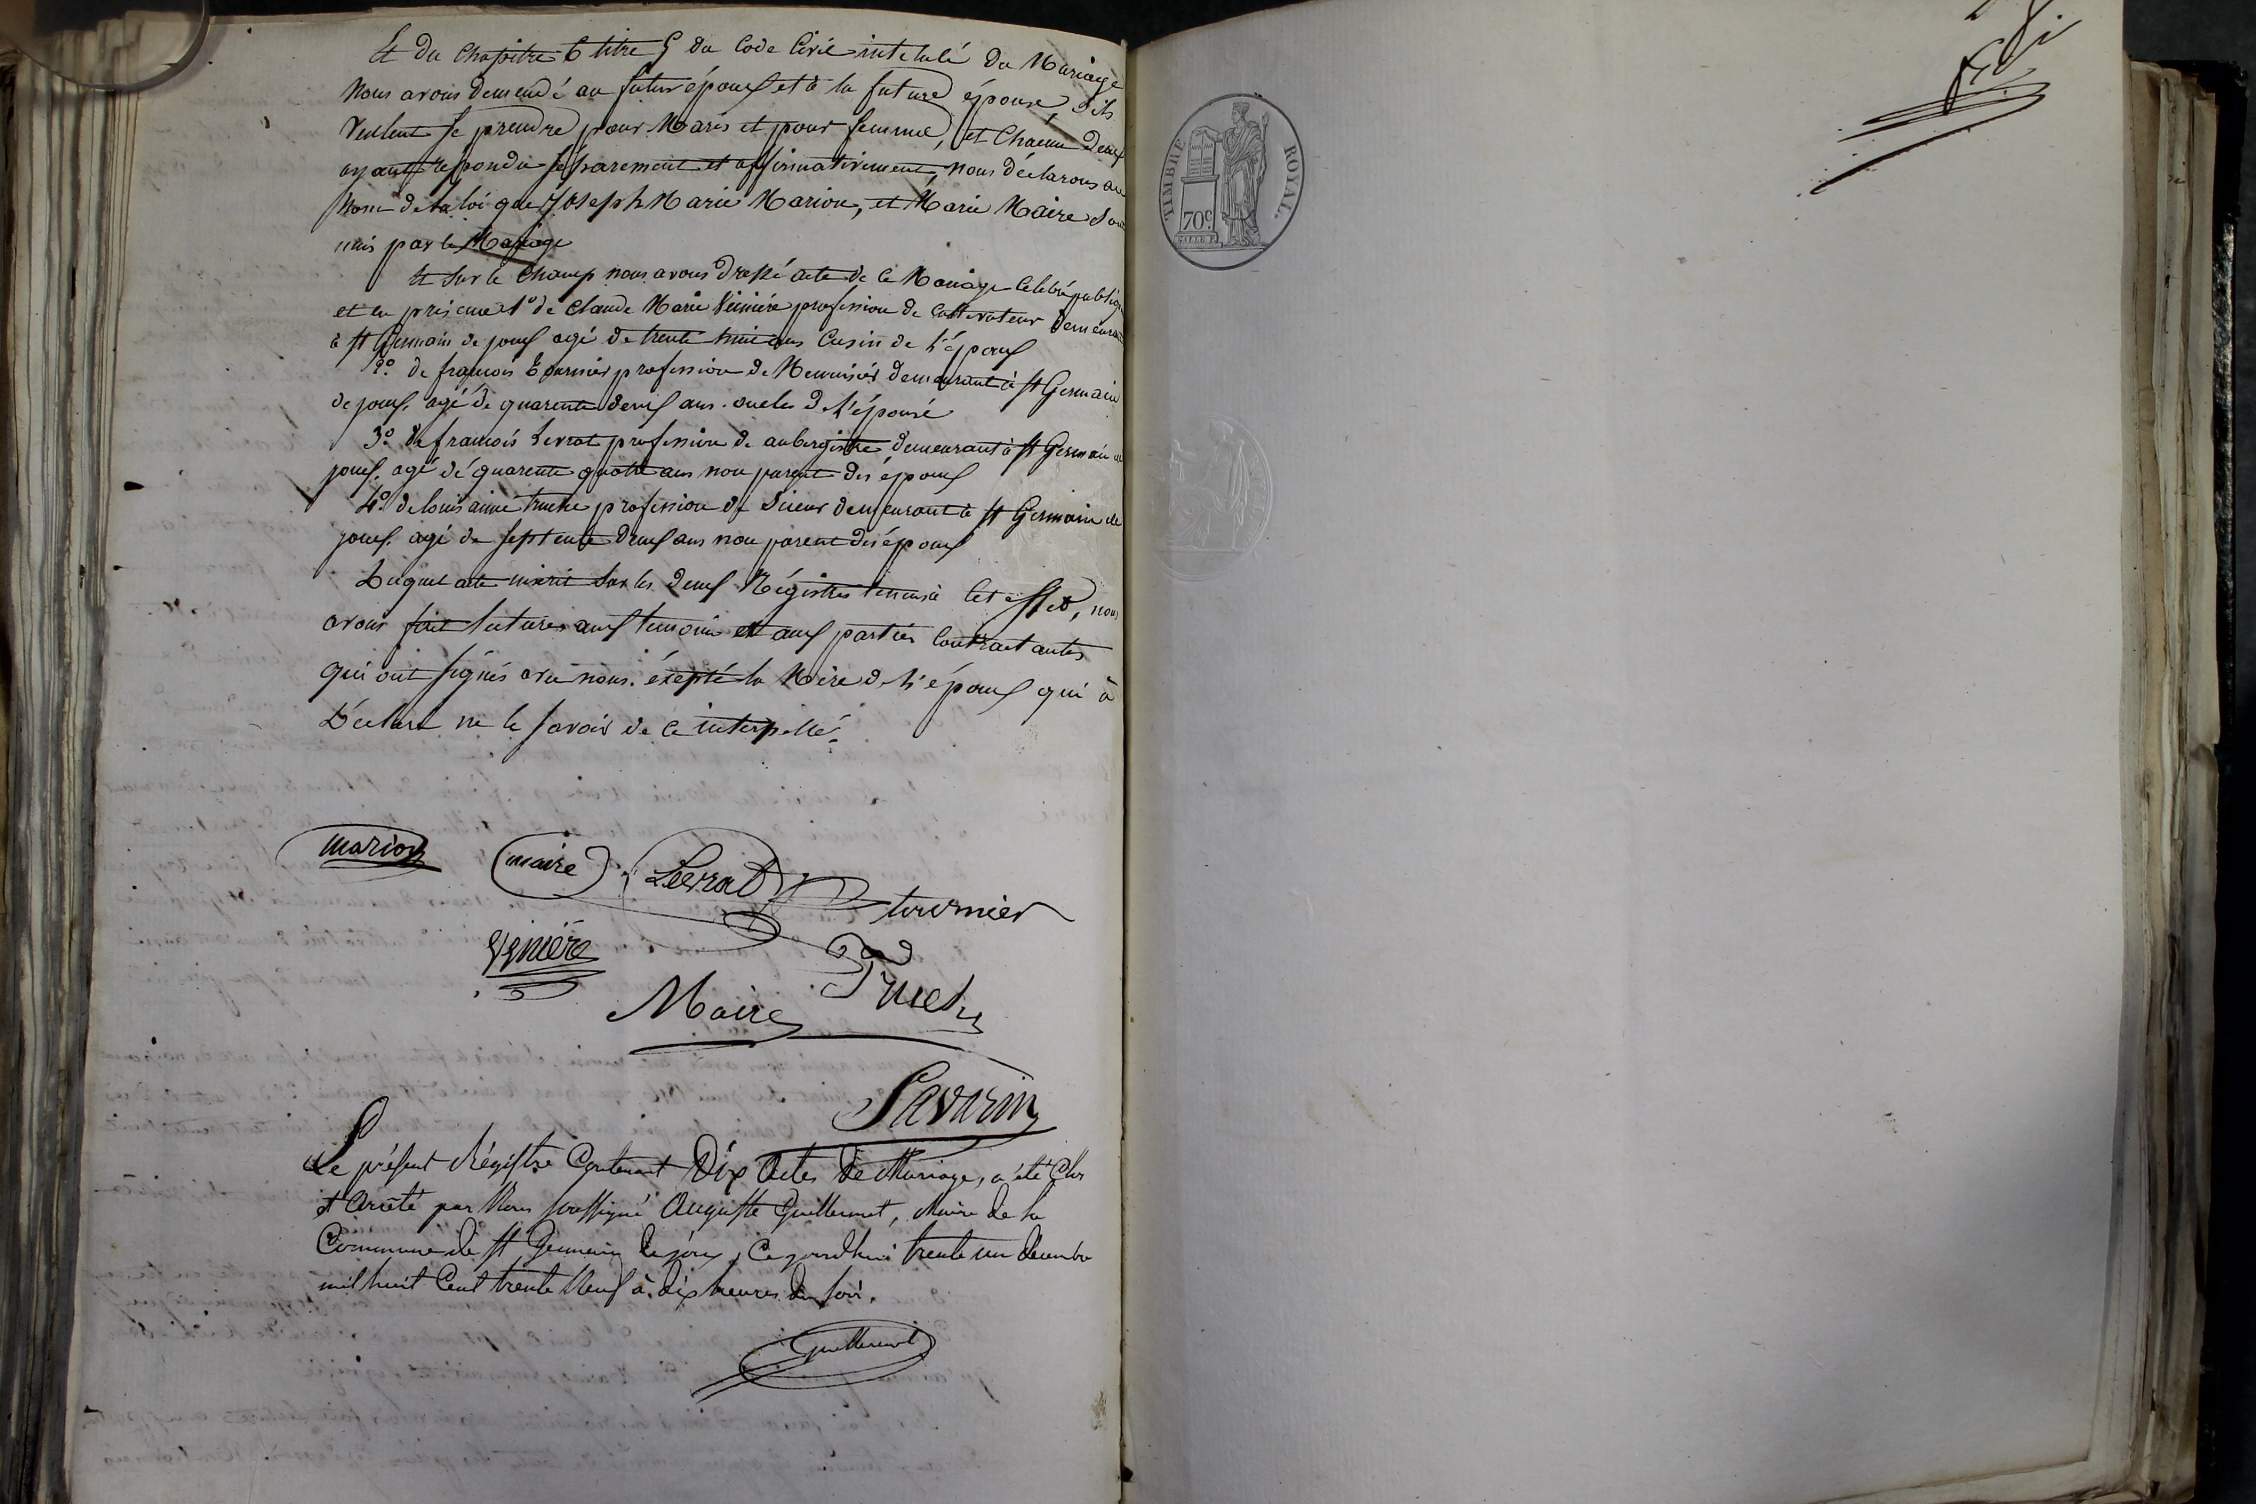 Et du Chapitre 6 titre 5 du Code Civil intitulé du Mariage
Nous avons demandé au futur époux et à la future épouse, s'ils
Veulent se prendre pour Maris et pour femme, et Chacun deux
ayant repondu séparement et affirmativement, nous déclarons au
Nom de la loi que Joseph Marie Marion, et Marie Maire sont
unis par le Mariage
Et sur le Champ nous avons dressé acte de ce Mariage Celebré
et en présence 1º de Claude Marie profession de Cultivateur demeurant
à St Germain de joux agé de trente ans Cusin de L'époux
2º. de françois tournier profession de Menuisier demeurant à St Germain
de joux. agé de quarente deux ans. oncles de L'épouse
3º. de françois Levrat profession de aubergistre demeurant à St Germain de
joux. agé de quarente quatre ans non parent des époux
4º. de louis aimé profession de Sieur demeurant à St Germain de
joux. agé de septente deux ans non parent des époux
Lequel acte inscrit sur les deux Régistres tenus à Cet effet, nous
avons fait lectures aux temoins et aux parties Contractantes
qui ont signés avec nous. éxepté la Mère de L'époux qui à
Déclaré ne le savoir de ce interpellé.
marion
maire
Levrat
tournier
Maire
Savarin
Le présent Régistre Contenant Dix Actes de Mariage, a été Clos
et Arrêté par Nous soussigné Auguste Guillermet, Maire de la
Commune de St Germain de joux, Ce jourdhui trente un décembre
mil huit Cent trente Neuf à dix heures du soir.
Guillermet
TIMBRE ROYAL.
70c